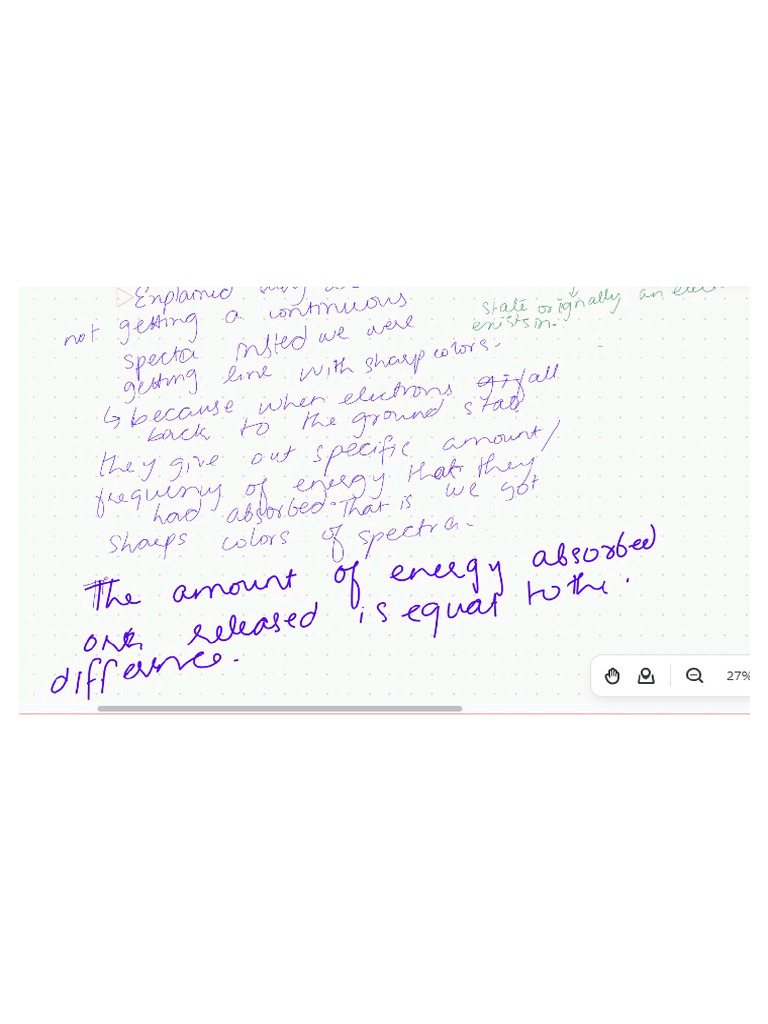 Enplained
not getting a continuous
specta insted we were
getting line with sharp colors.
↳ because when electrons fall
back to the ground state
they give out specific amount/
frequency of energy that they
had absorbed. That is we got
sharps colors of spectra.
The amount of energy absorbed
or released is equal to the
difference.
state orignally an elec
enists in.
27%